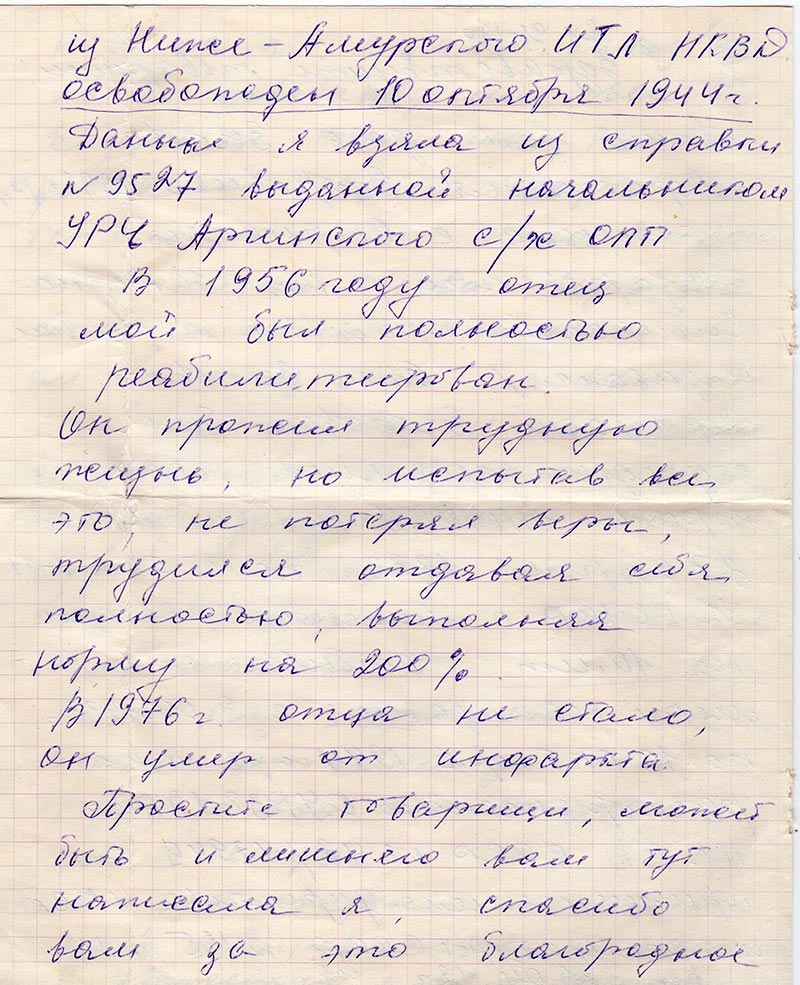 из Ниже-Амурского ИТЛ НКВД
освобожден 10 октября 1944 г.
Данные я взяла из справки
N 9527 выданной начальником
УРЧ Аргинского с/х ОЛП
В 1956 году отец
мой был полностью
реабилитирован.
Он прожил трудную
жизнь, но испытав все
это, не потерял веры,
трудился отдавая себя
полностью, выполняя
норму на 200%.
В 1976 г. отца не стало,
он умер от инфаркта.
Простите товарищи, может
быть и лишнего вам тут
написала я, спасибо
вам за это благородное